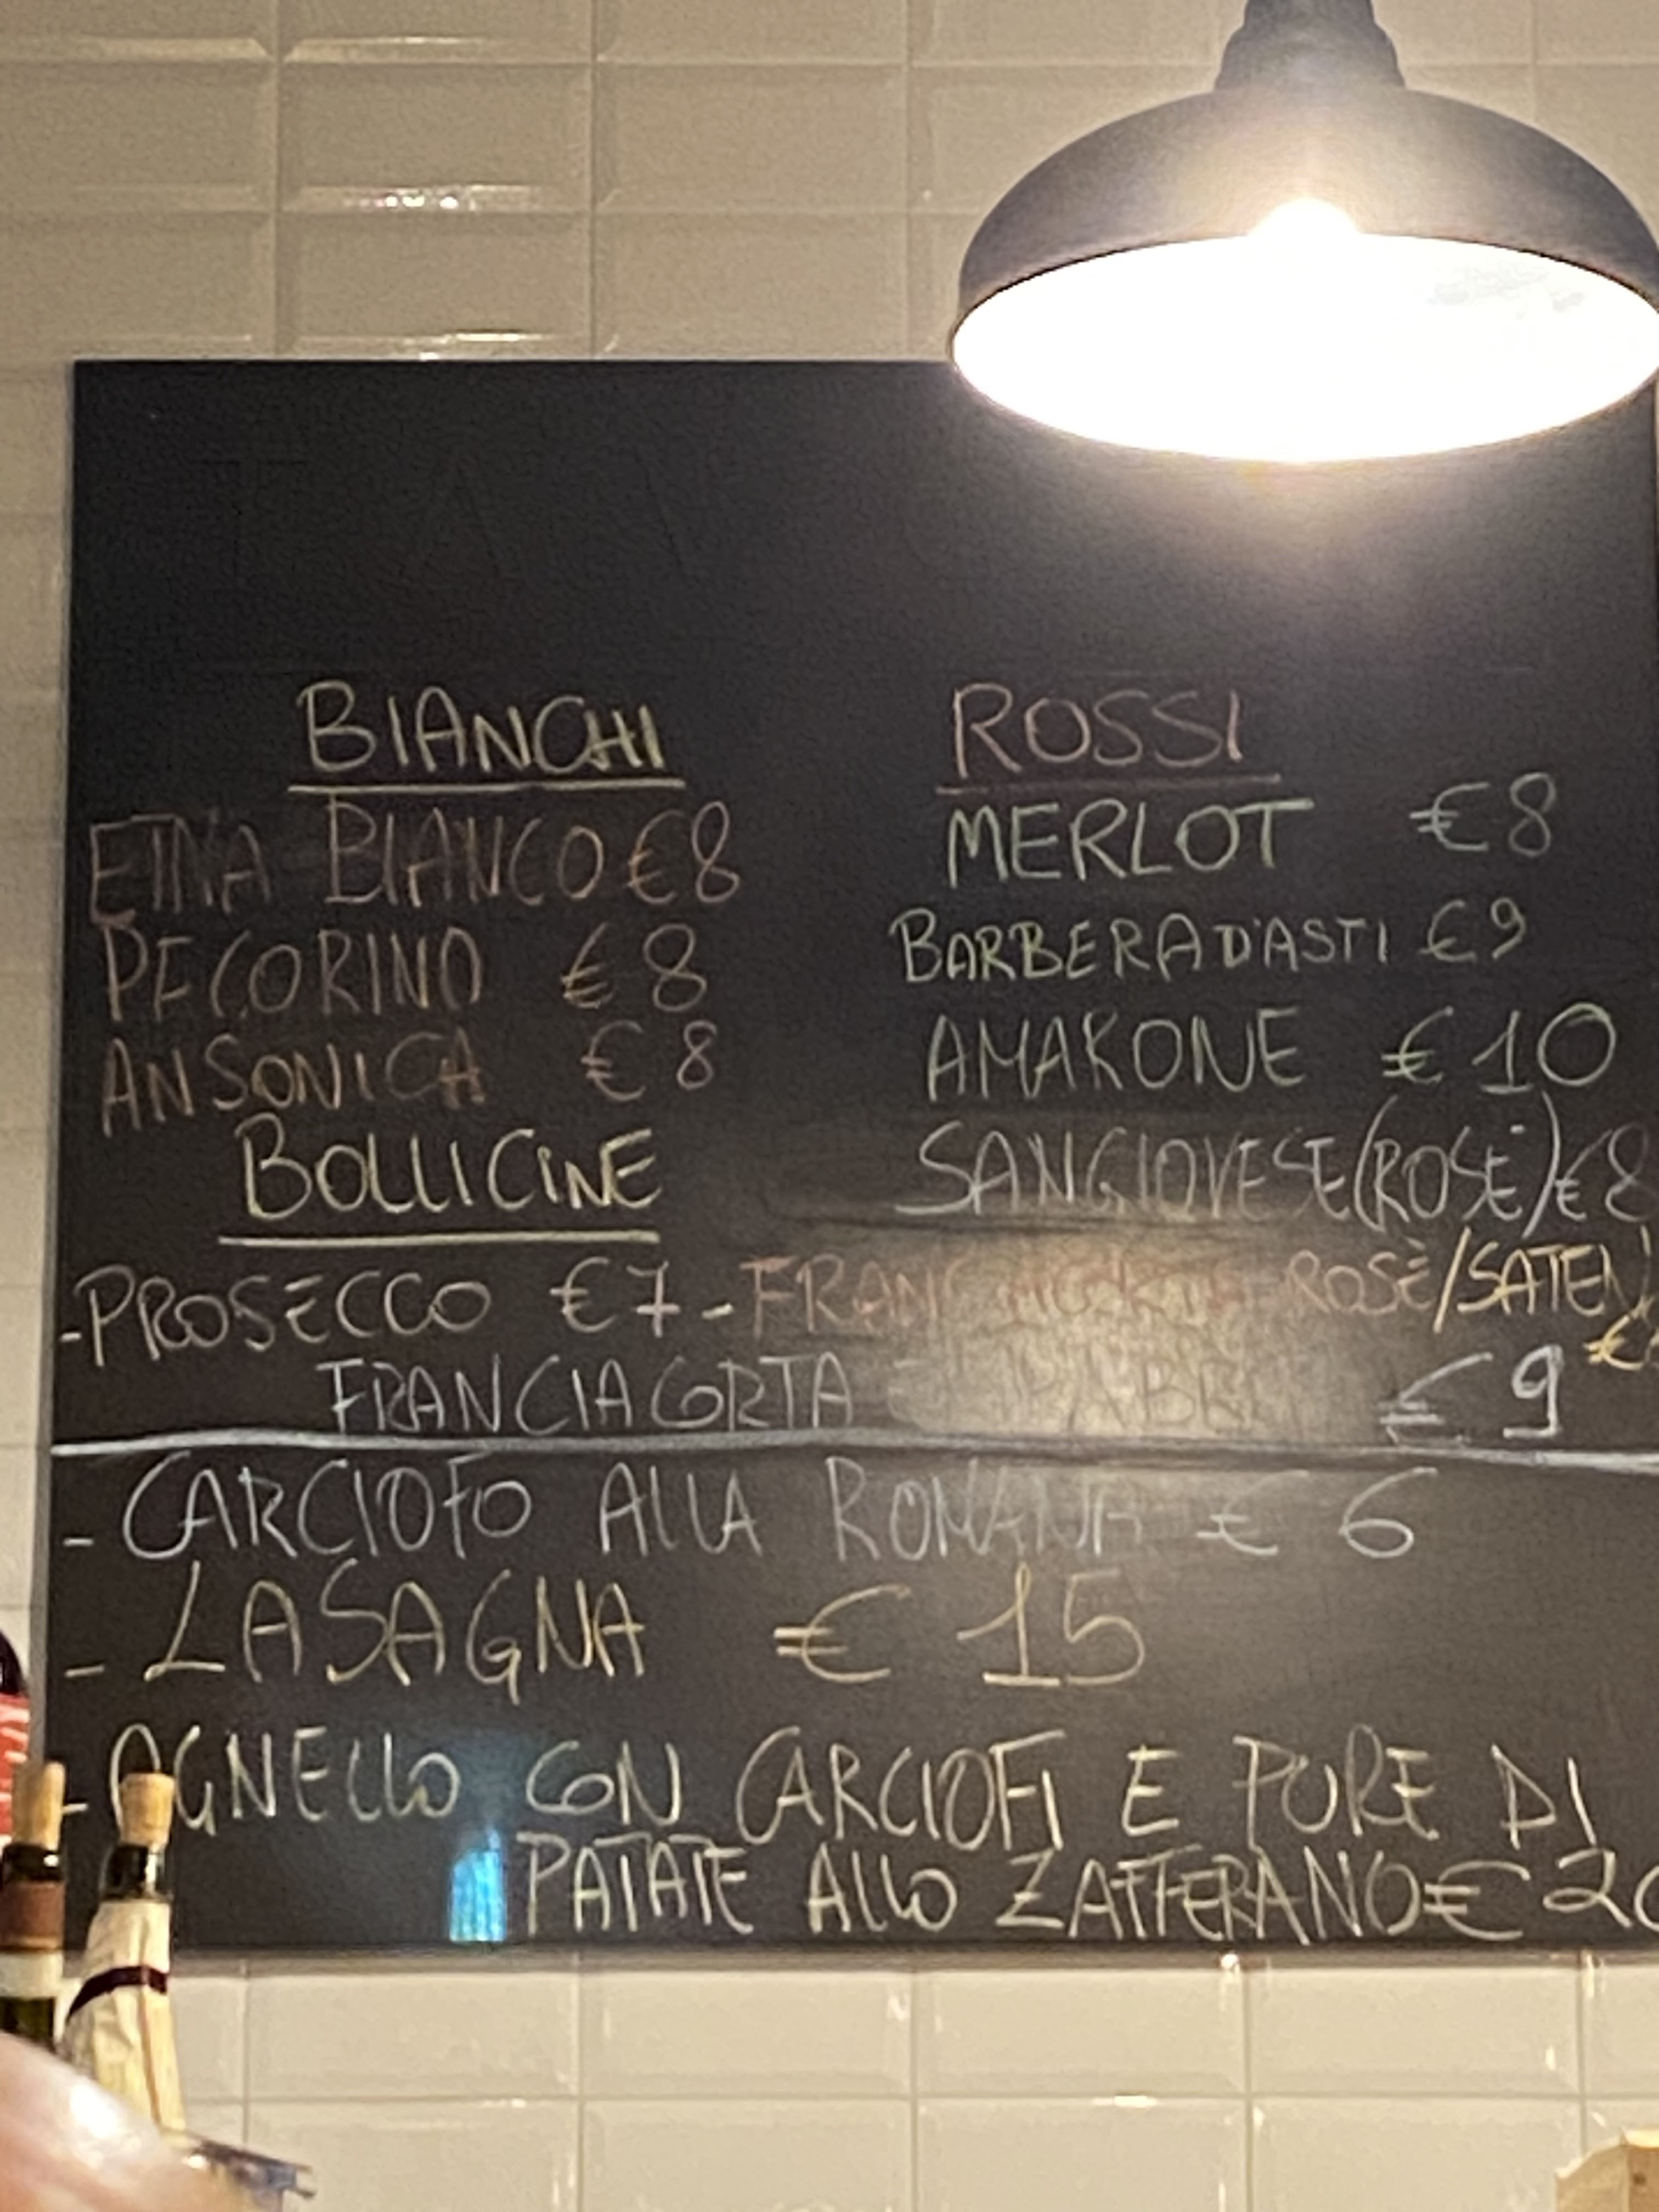 BIANCHI
ETNA BIANCO €8
PECORINO €8
ANSONICA €8
ROSSI
MERLOT €8
BARBERA D'ASTI €9
AMARONE €10
SANGIOVESE (ROSÈ) €8
BOLLICINE
-PROSECCO €7 - FRANCIACORTA ROSÈ/SATEN
€
FRANCIACORTA €9
- CARCIOFO ALLA ROMANA € 6
- LASAGNA € 15
- AGNELLO CON CARCIOFI E PURE DI
PATATE ALLO ZAFFERANO € 20